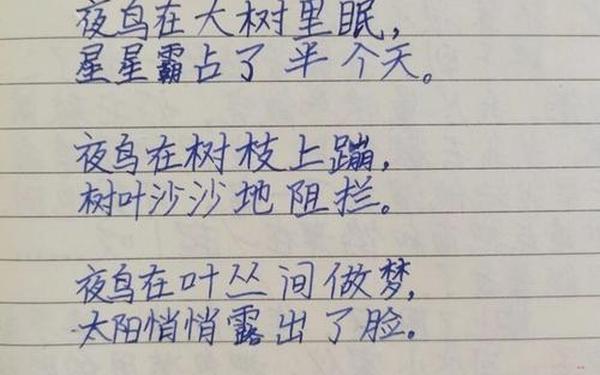 夜鸟在大树里眠,
星星霸占了半个天。
夜鸟在树枝上蹦,
树叶沙沙地阻拦。
夜鸟在叶丛间做梦,
太阳悄悄露出了脸。